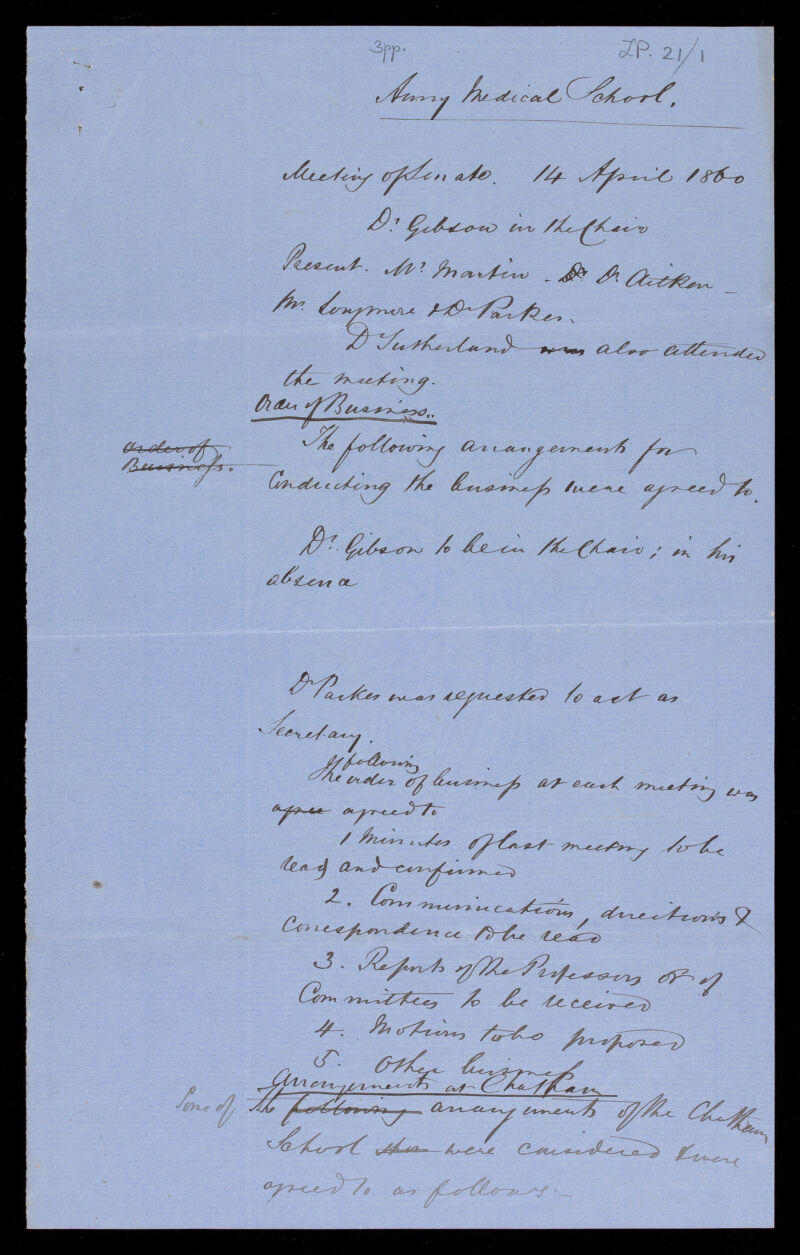 3pp.
LP. 21/1
Army Medical School.
Meeting of Senate. 14 April 1860
Dr Gibson in the Chair
Present. Mr Martin - Dr Dr Aitken -
Mr. Longmore & Dr Parkes.
Dr Sutherland was also attended
the meeting.
Order of Business.
Order of
Business.
The following arrangements for
Conducting the business were agreed to.
Dr. Gibson to be in the Chair; in his
absence
Dr Parkes was requested to act as
Secretary.
following
The order of business at each meeting was
agree agreed to
1 Minutes of last meeting to be
read and confirmed
2. Communications, directions &
correspondence to be read
3. Reports of the Professors or of
Committees to be received
4. Motions to be proposed
5. Other business
Arrangements at Chatham
Some of the following arrangements of the Chatham
School were considered & were
agreed to as follows.-